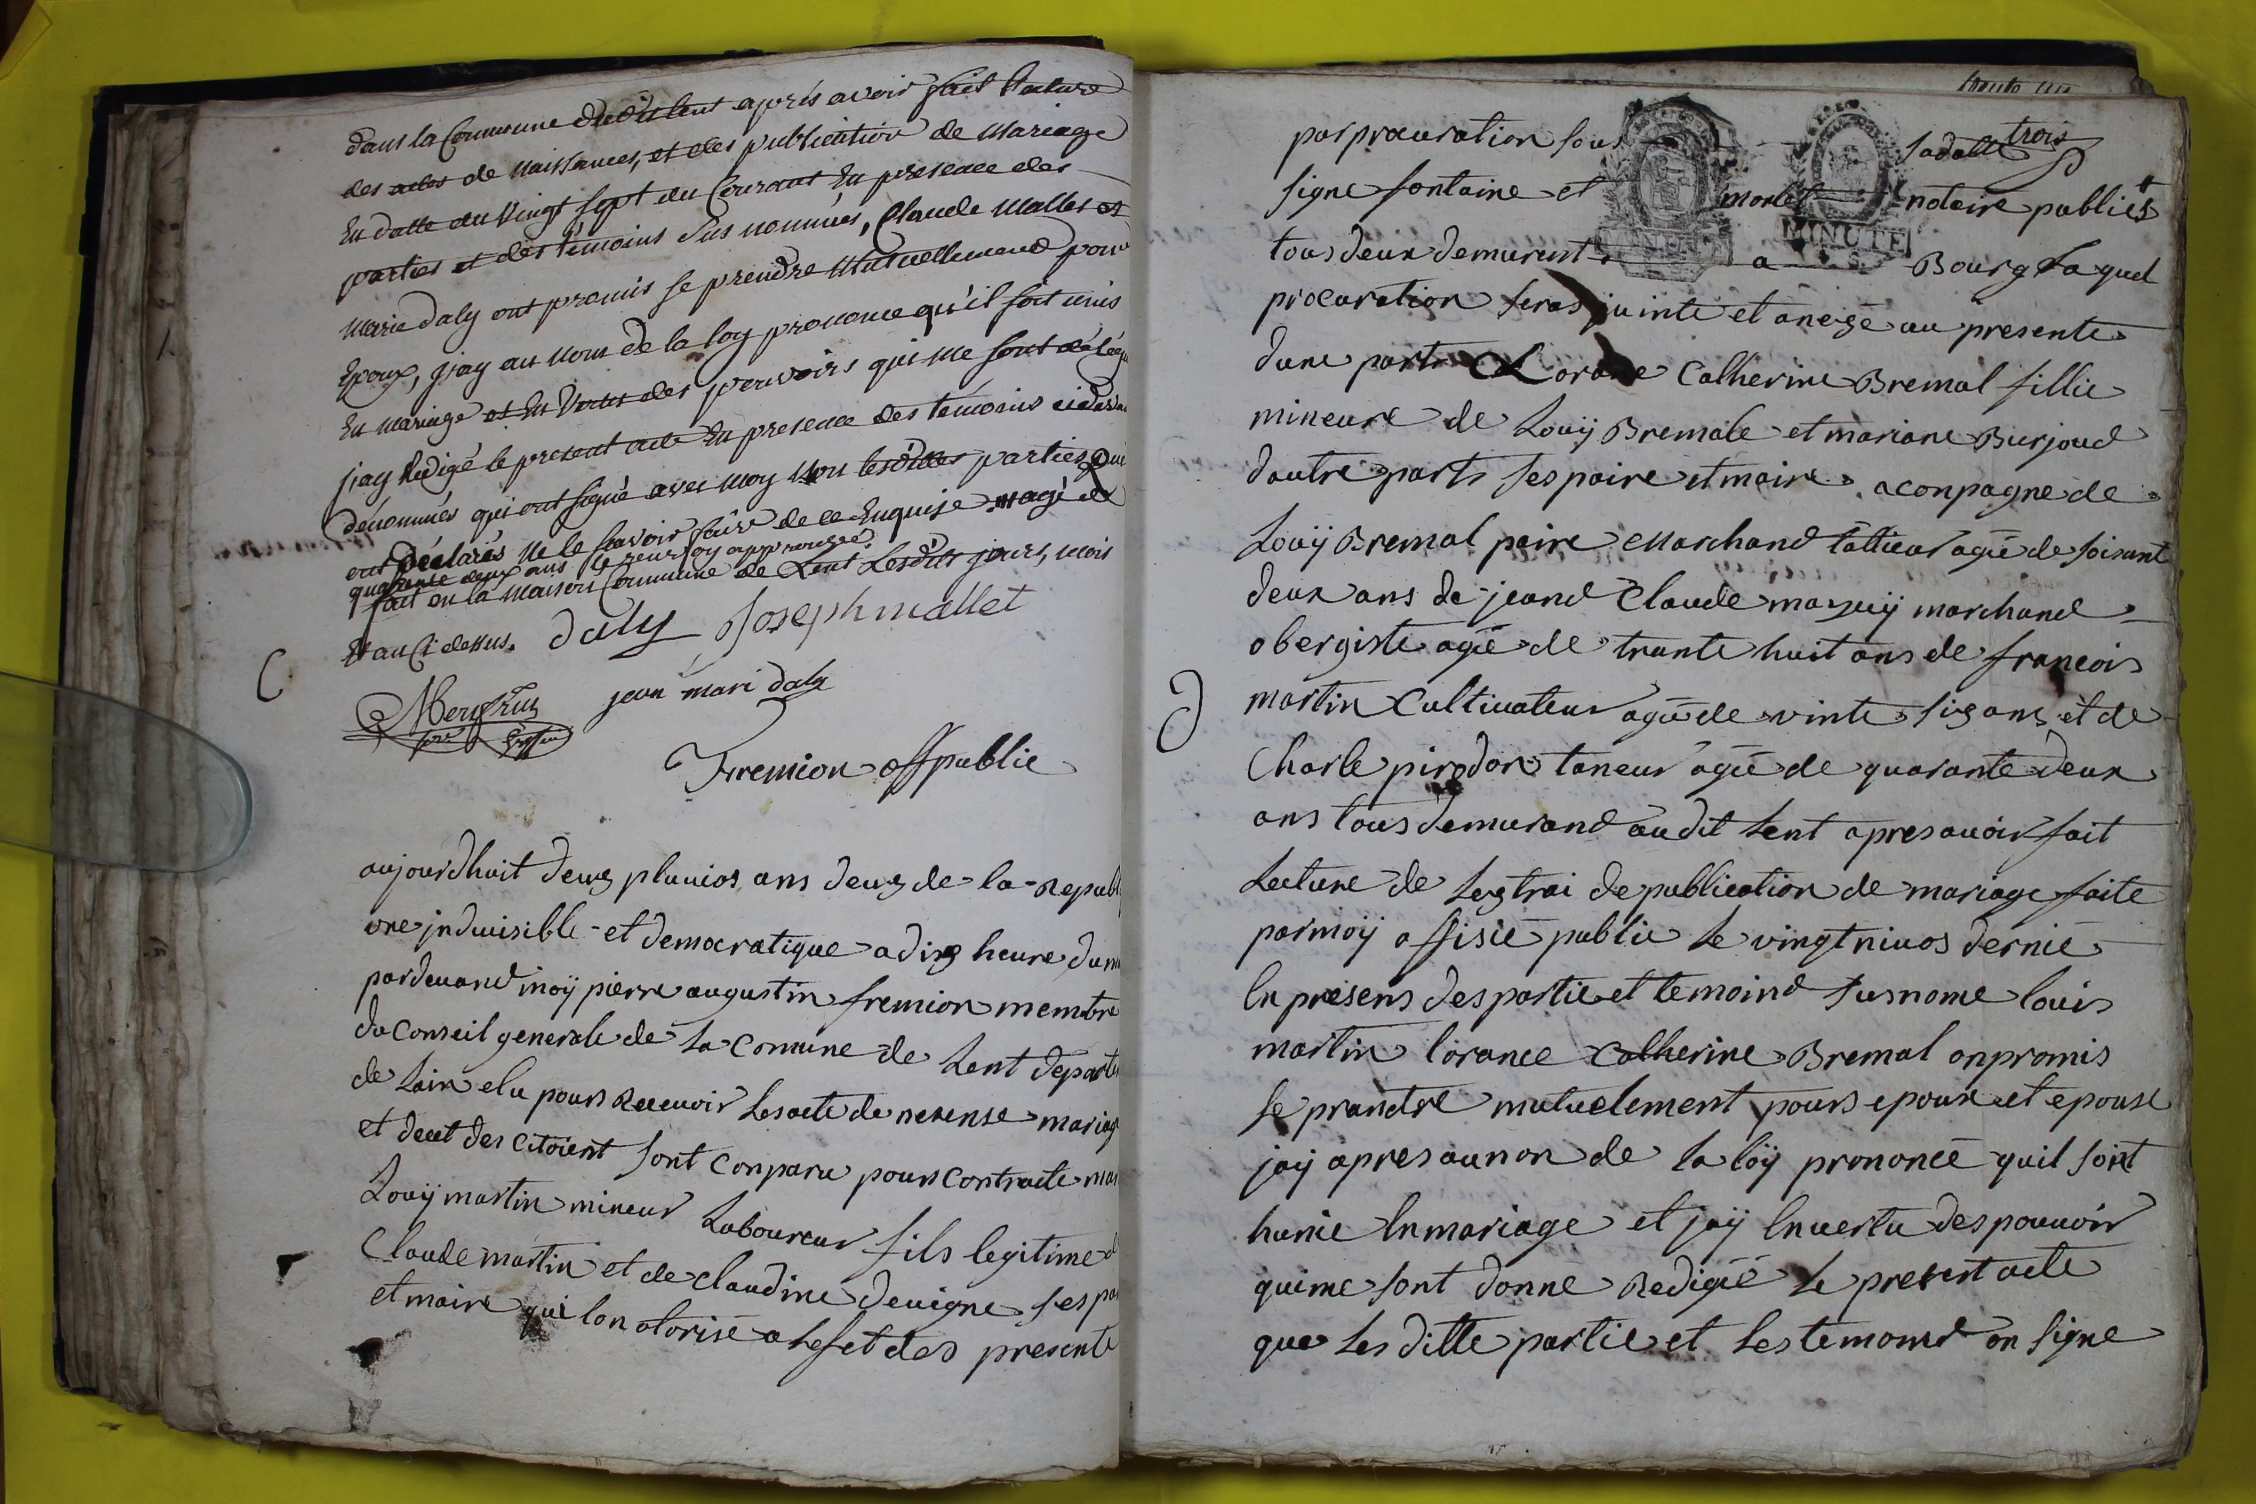 dans la Commune dudit lent après avoir fait lecture
des actes de Naissances, et des publication de Mariage
En datte du Vingt sept du Courant En presence des
parties et des témoins sus nommés, Claude Mallet et
Marie daly ont promis se prendre Mutuellement pour
Epoux, j'ay au Nom de la loy prononcé qu'il sont unis
En Mariage et En Vertu des pouvoirs qui me sont délég
j'ay Rédigé le present acte En presence des témoins cidevan
dénommés qui ont signé avec moy Non lesdittes parties qui
ont Déclarés Ne le savoir faire de ce Enquise
quarente deux ans le renvoy approuvée
fait en la Maison Commune de Lent Lesdits jours, mois
Et an Ci dessus. daly Joseph mallet
jean mari daly
Fremion off public
aujourdhuit deux pluvios ans deux de la Republ
une jndivisible et democratique a dix heure du m
pardevand moÿ pierre augustin fremion membre
du Conseil generale de La Comune de Lent departe
de Lain elu pours Recevoir Les acte de nesense mariag
et decet des Citoient sont Conparu pours Contracte mar
Louÿ martin mineur Laboureur fils legitime d
Claude martin et de Claudine devigne ses pa
et maire qui lon otorisé a lefet des presente
trois
par procuration sous sa datte
signe fontaine et morlet notaire publics
MINUTE
tous deux demurent a Bourg La quel
procuration seras juinte et anexse au presente
dune part Lorance Catherine Bremal fillie
mineure de Louÿ Bremale et mariane Burjoud
dautre parts ses paire et maire aconpagne de
Louÿ Bremal paire Marchand tallieur agié de soisant
deux ans de jeand Claude maruÿ marchand
obergiste agié de trante huit ans de francois
martin Cultivateur agié de vinte six ans et de
Charle pirodon taneur agié de quarante deux
ans tous demurand audit Lent apres avoir fait
Lecture de Lextrai de publication de mariage faite
par moÿ offisié public Le vingt nivos dernié
En presens des partie et temoind susnome louis
martin lorance Catherine Bremal on promis
se prandre mutuelement pours epoux et epouse
jaÿ apres au non de La loÿ prononcé quil soint
hunie En mariage et jaÿ En vertu des pouvoir
qui me sont donné Redigié Le present acte
que Les ditte partie et Les temoind on signe